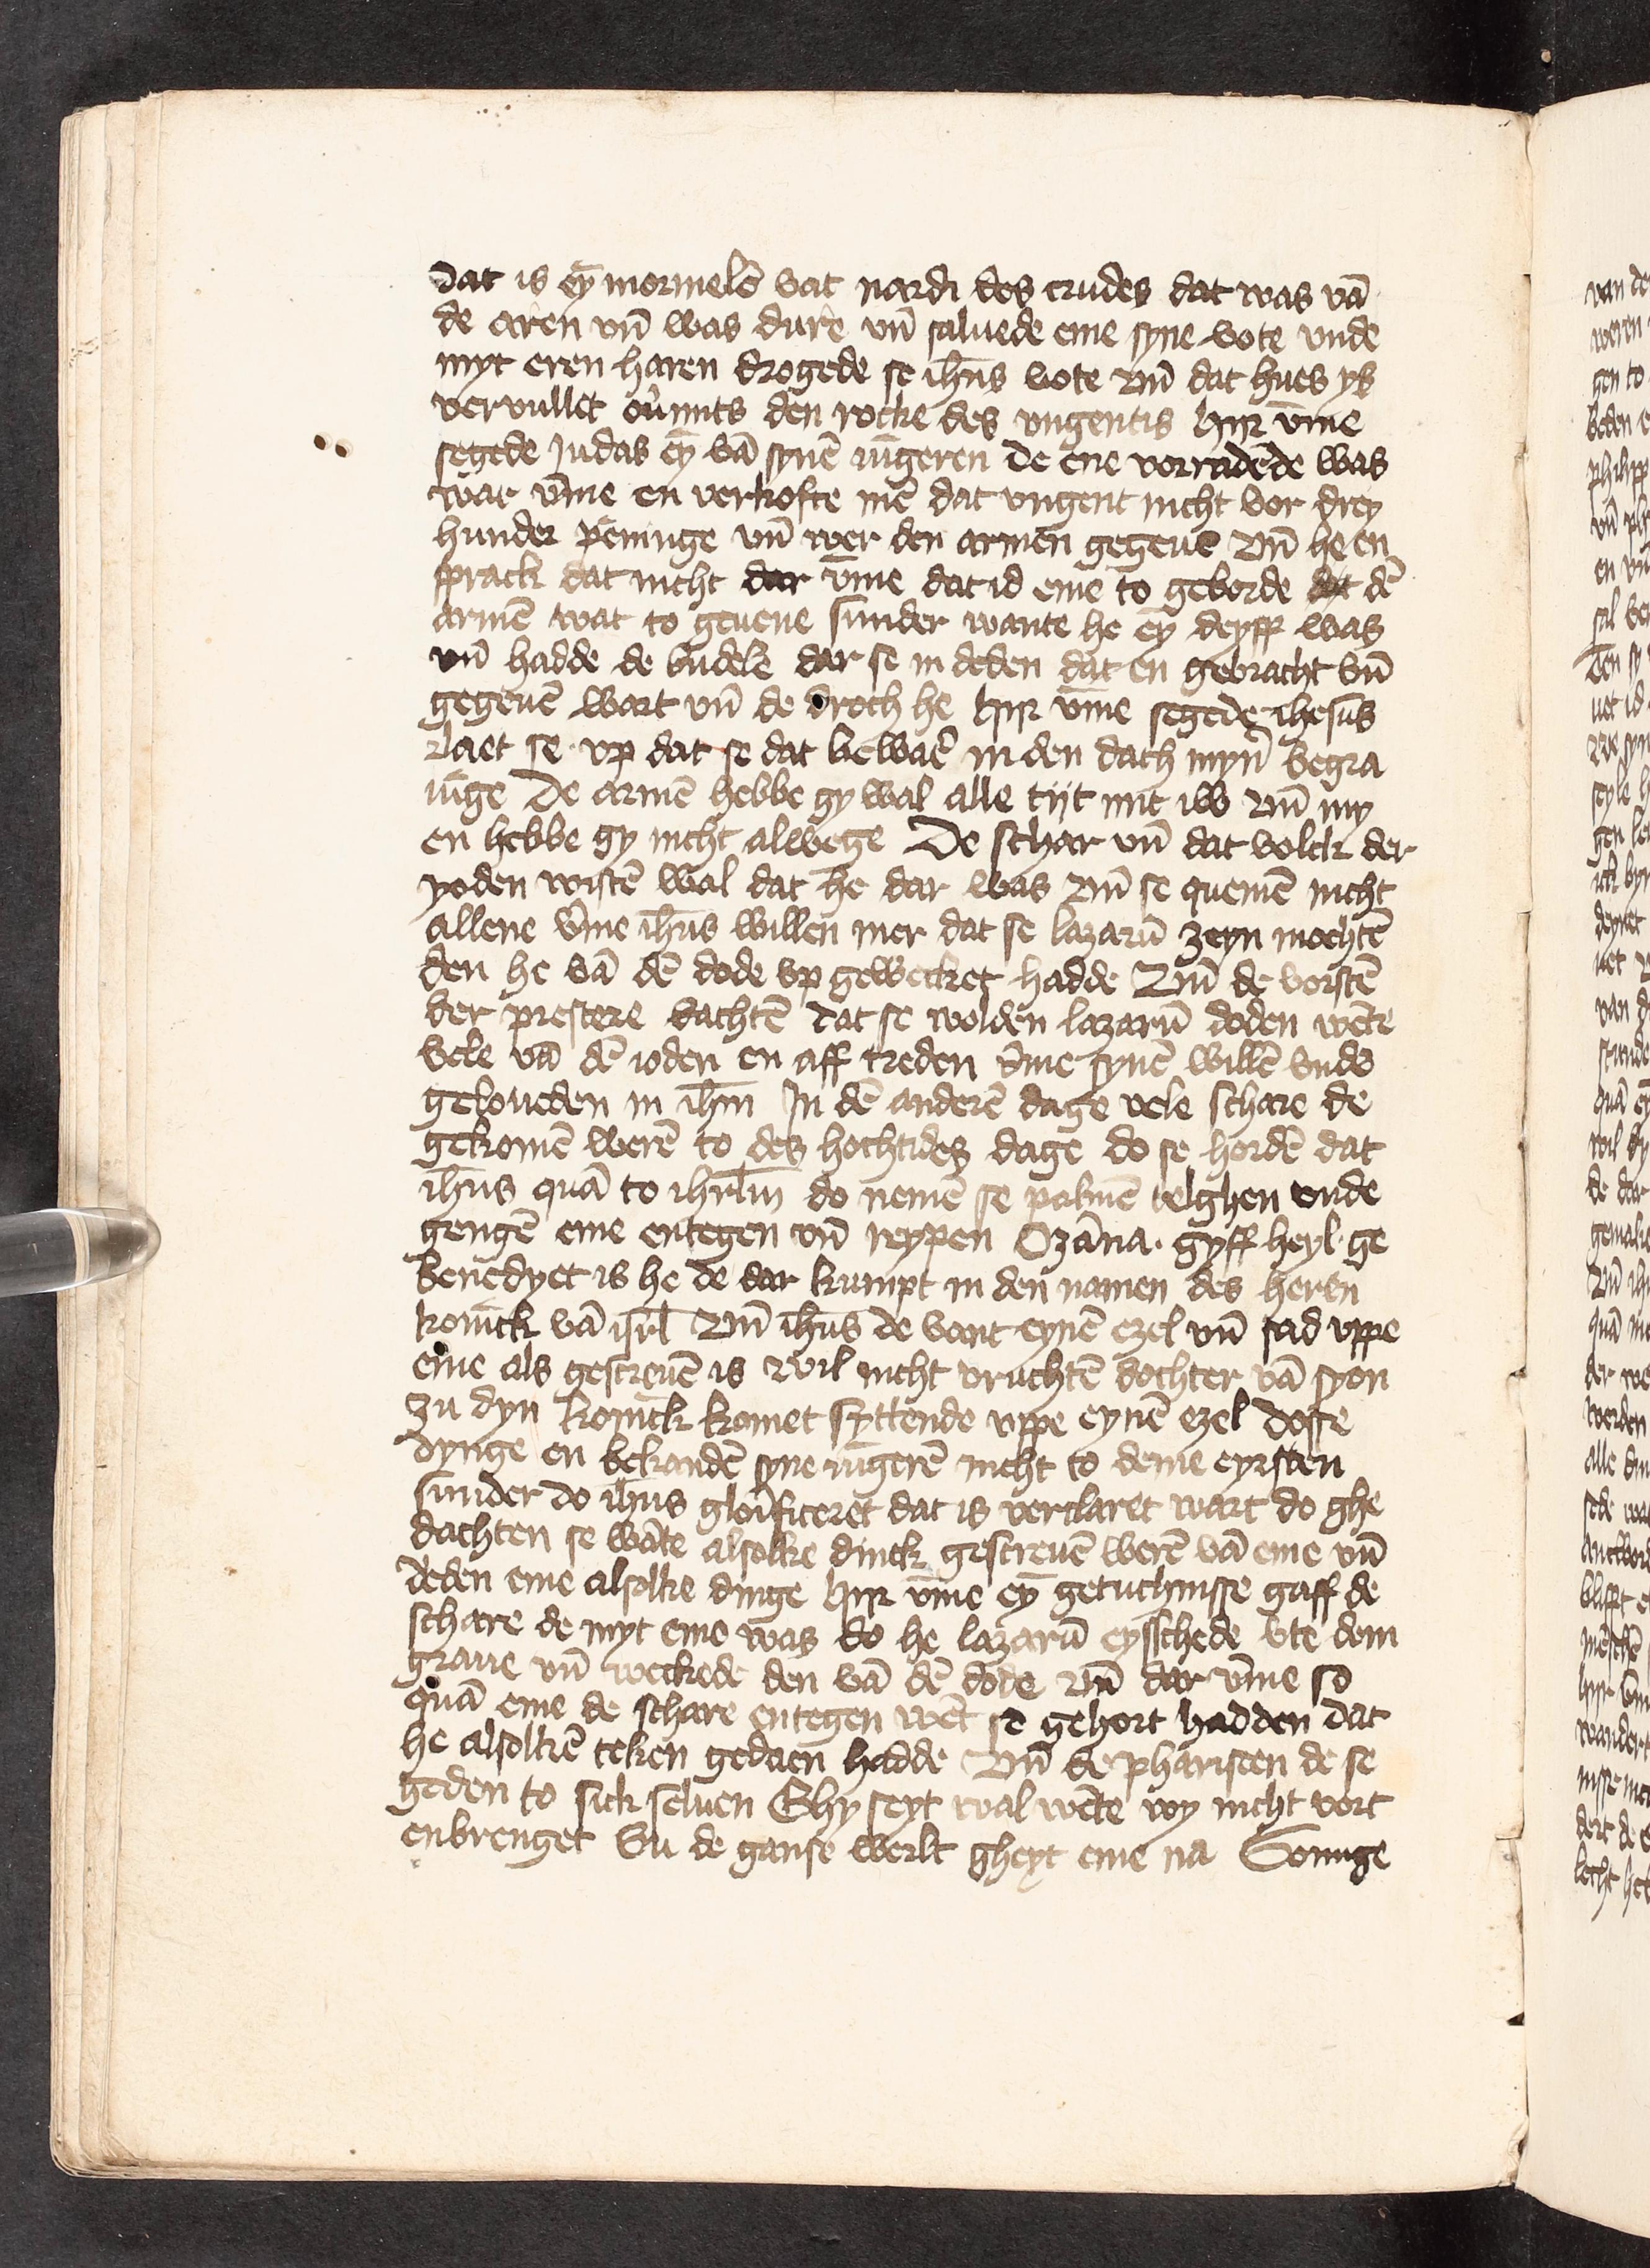 Dat is ey̅ mormelē vat nardi des crudes dat was vā
de aren vn̄ was dure vn̄ saluede eme syne vote vnde
myt eren haren drogede se ih̅us vote Vn̄ dat hues ys
vervullet ou̅mits den rocke des vngentis Hijr vm̅e
segede Judas ey̅ vā synē iu̅geren De ene vorradēde was
war vm̅e en verkofte mē dat vngent nicht vor drey
hunder pēninge vn̄ wer den armen gegeuē Vn̄ he en
sprack dat nicht dar vm̅e dat id eme to geborde dat dē
armē wat to geuene sunder wante he ey̅ deyff was
vn̄ hadde de budele dar se in deden dat en gebracht vn̄
gegeuē wart vn̄ de droch he Hijr vm̅e segede ihesus
Laet se vp dat se dat bewaē in den dach myn̄ begra
iu̅ge De armē hebbe gy wal alle tijt mit iw Vn̄ my
en hebbe gy nicht alwege De schar vn̄ dat volck der
yoden wistē wal dat he dar was Vn̄ se quemē nicht
allene vm̅e ih̅us willen mer dat se lazarū zeyn mochtē
den he vā dē dode vp gewecket hadde Vn̄ de vorstē
der prestere dachtē Dat se wolden lazarū doden wēte
vele vā dē ioden en aff treden vm̅e synē willē vnde
geloueden in ih̅m In dē anderē dage vele schare de
gekomē werē to des hochtides dage do se hordē dat
ih̅us quā to ihr̅lm do nemē se palmē telghen vnde
gengē eme entegen vn̄ reypen Ozāna · gyff heyl · ge
benedyet is he de dar kumpt in den namen des heren
konick vā isr̅l Vn̄ ih̅us de vant eynē ezel vn̄ sad vppe
eme als gescreuē is Wil nicht vruchtē dochter vā syon
Zu dyn konick komet syttende vppe eynē ezel Dosse
dynge en bekandē syne iu̅gerē nicht to deme eyrsten
sunder do ih̅us glorificeret dat is verclaret wart do ghe
dachten se wāte alsolke dinck gescreuē werē vā eme vn̄
deden eme alsolke dinge Hijr vm̅e ey̅ getuchnisse gaff de
schare de myt eme was do he lazarū eysschede vte dem
graue vn̄ weckede den vā dē dode Vn̄ dar vm̅e so
quā eme de schare entegen wēt se gehort hadden dat
he alsolkē teken gedaen hadde Vn̄ de phariseen de se
geden to sick seluen Ghy seyt wal wēte wy nicht vort
enbrenget Su de ganse werlt gheyt eme na Somige